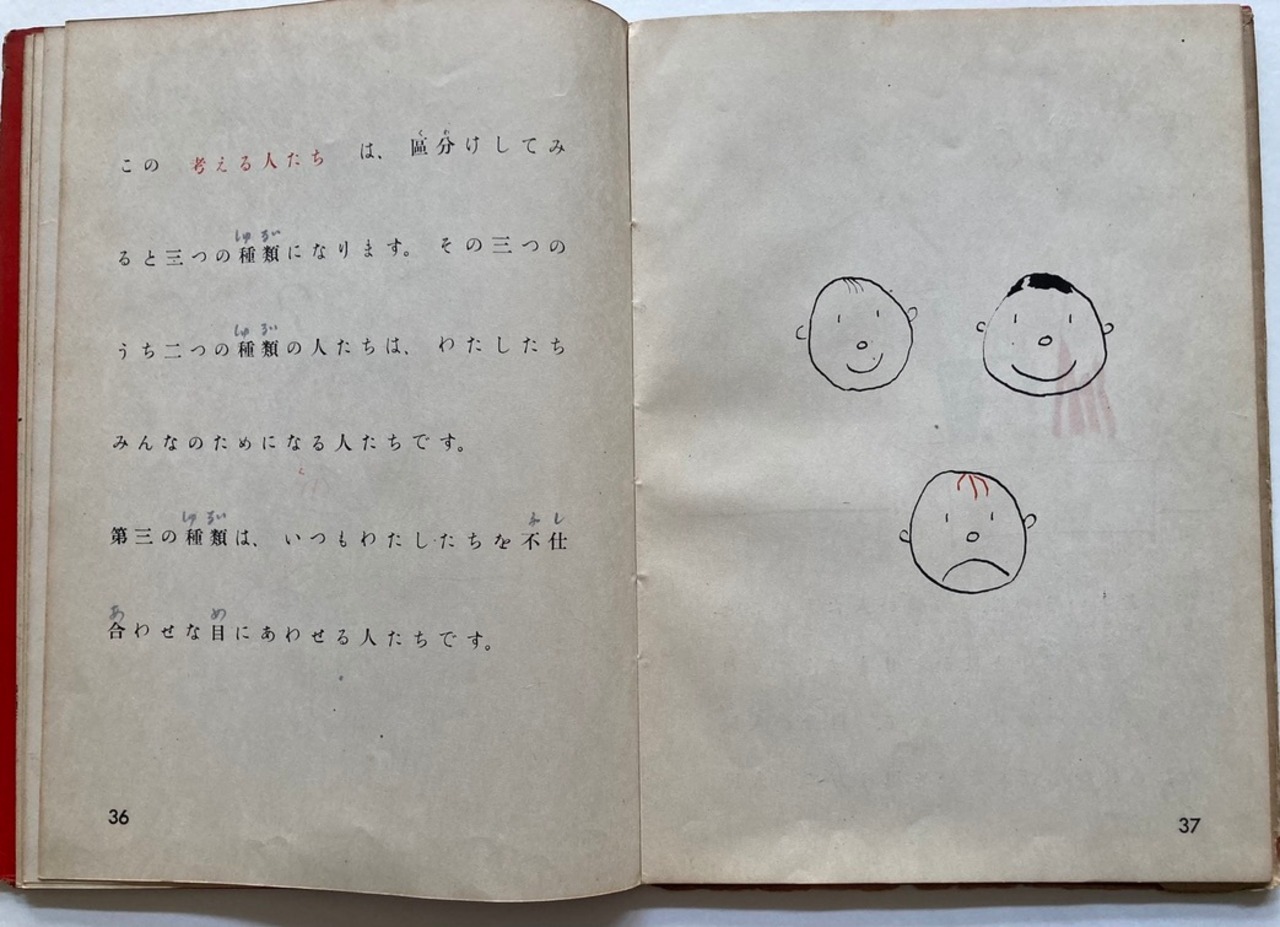 この 考える人たち は、區分けしてみ
ると三つの種類になります。その三つの
うち二つの種類の人たちは、わたしたち
みんなのためになる人たちです。
第三の種類は、いつもわたしたちを不仕
合わせな目にあわせる人たちです。
36
37